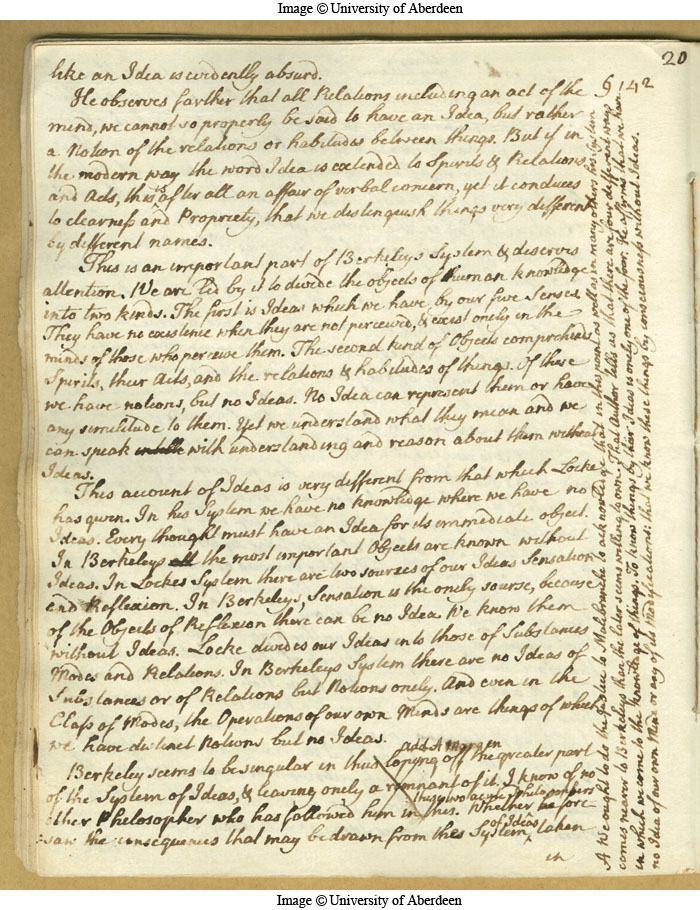 Image © University of Aberdeen
20
like an Idea is evidently absurd.
§ 142
He observes farther that all Relations including an act of the
mind, we cannot so properly be said to have an Idea, but rather
a Notion of the relations or habitudes between things. But if in
the modern way the word Idea is extended to Spirits & Relations
and Acts, this is after all an affair of verbal concern, yet it conduces
to clearness and Propriety, that we distinguish things very different
by different names.
This is an important part of Berkeleys System & deserves
attention. We are led by it to divide the objects of human knowledge
into two kinds. The first is Ideas which we have by our five Senses
They have no existence when they are not perceived, & exist onely in the
minds of those who perceive them. The second kind of Objects comprehends
Spirits, their Acts, and the relations & habitudes of things. Of these
we have notions, but no Ideas. No Idea can represent them or have
any similitude to them. Yet we understand what they mean and we
can speak with understanding and reason about them without
Ideas.
This account of Ideas is very different from that which Locke
has given. In his System we have no knowledge where we have no
Ideas. Every thought must have an Idea for its immediate object.
In Berkeleys the most important Objects are known without
Ideas. In Lockes System there are two sources of our Ideas Sensation
and Reflexion. In Berkeleys, Sensation is the onely sourse, because
of the Objects of Reflexion there can be no Idea. We know them
without Ideas. Locke divides our Ideas into those of Substances
Modes and Relations. In Berkeleys System there are no Ideas of
Substances or of Relations but Notions onely. And even in the
Class of Modes, the Operations of our own Minds are things of which
we have distinct Notions but no Ideas.
add A Margin
Berkeley seems to be singular in thus loping off the greater part
of the System of Ideas, & leaving onely a remnant of it. I know of no
other Philosopher who has followed him in this. Whether he fore-
of Ideas
saw the consequences that may be drawn from this System, taken
in
A We ought to do the Justice to Malebranche to acknowledge that in this point as well as in many others his System
comes nearer to Berkeleys than the later seems willing to own. That Author tells us that there are four different ways
in which we come to the knowledge of things. To know things by their Ideas is onely one of the four. He affirms that we have
no Idea of our own Mind or any of its Modifications: that we know these things by consciousness without Ideas.
Image © University of Aberdeen